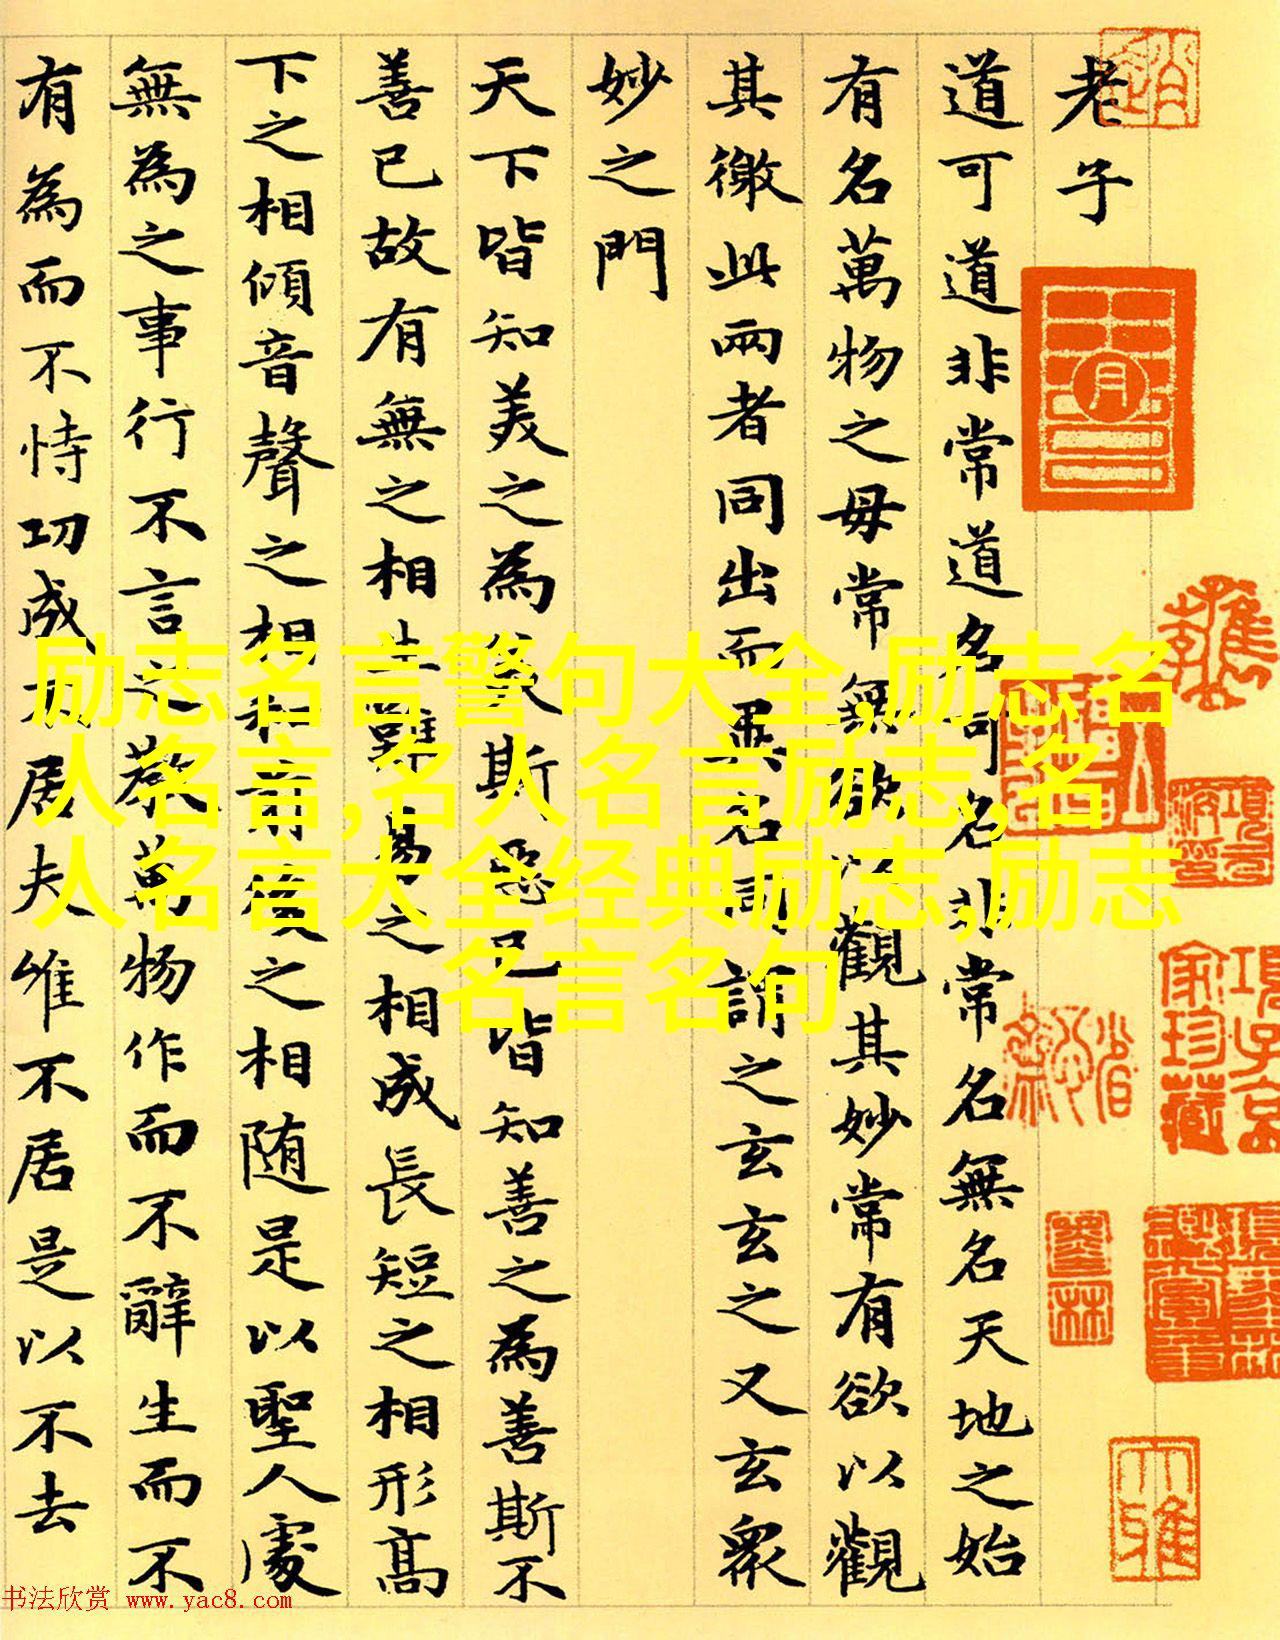 老子
道可道非常道名可名非常名無名天地之始
有名萬物之母常無欲以觀其妙常有欲以觀
其徼此兩者同出而異名同謂之玄玄之又玄衆
妙之門
天下皆知美之為美斯惡已皆知善之為善斯不
善已故有無之相生難易之相成長短之相形高
下之相傾音聲之相和前後之相随是以聖人處
無為之事行不言之教萬物作而不辭生而不
有為而不恃功成不居夫惟不居是以不去
励志名言警句大全,励志名
人名言,名人名言励志,名
人名言大全经典励志,励志
名言名句
項子京
家珍藏
大雅
书法欣赏 www.yac8.com